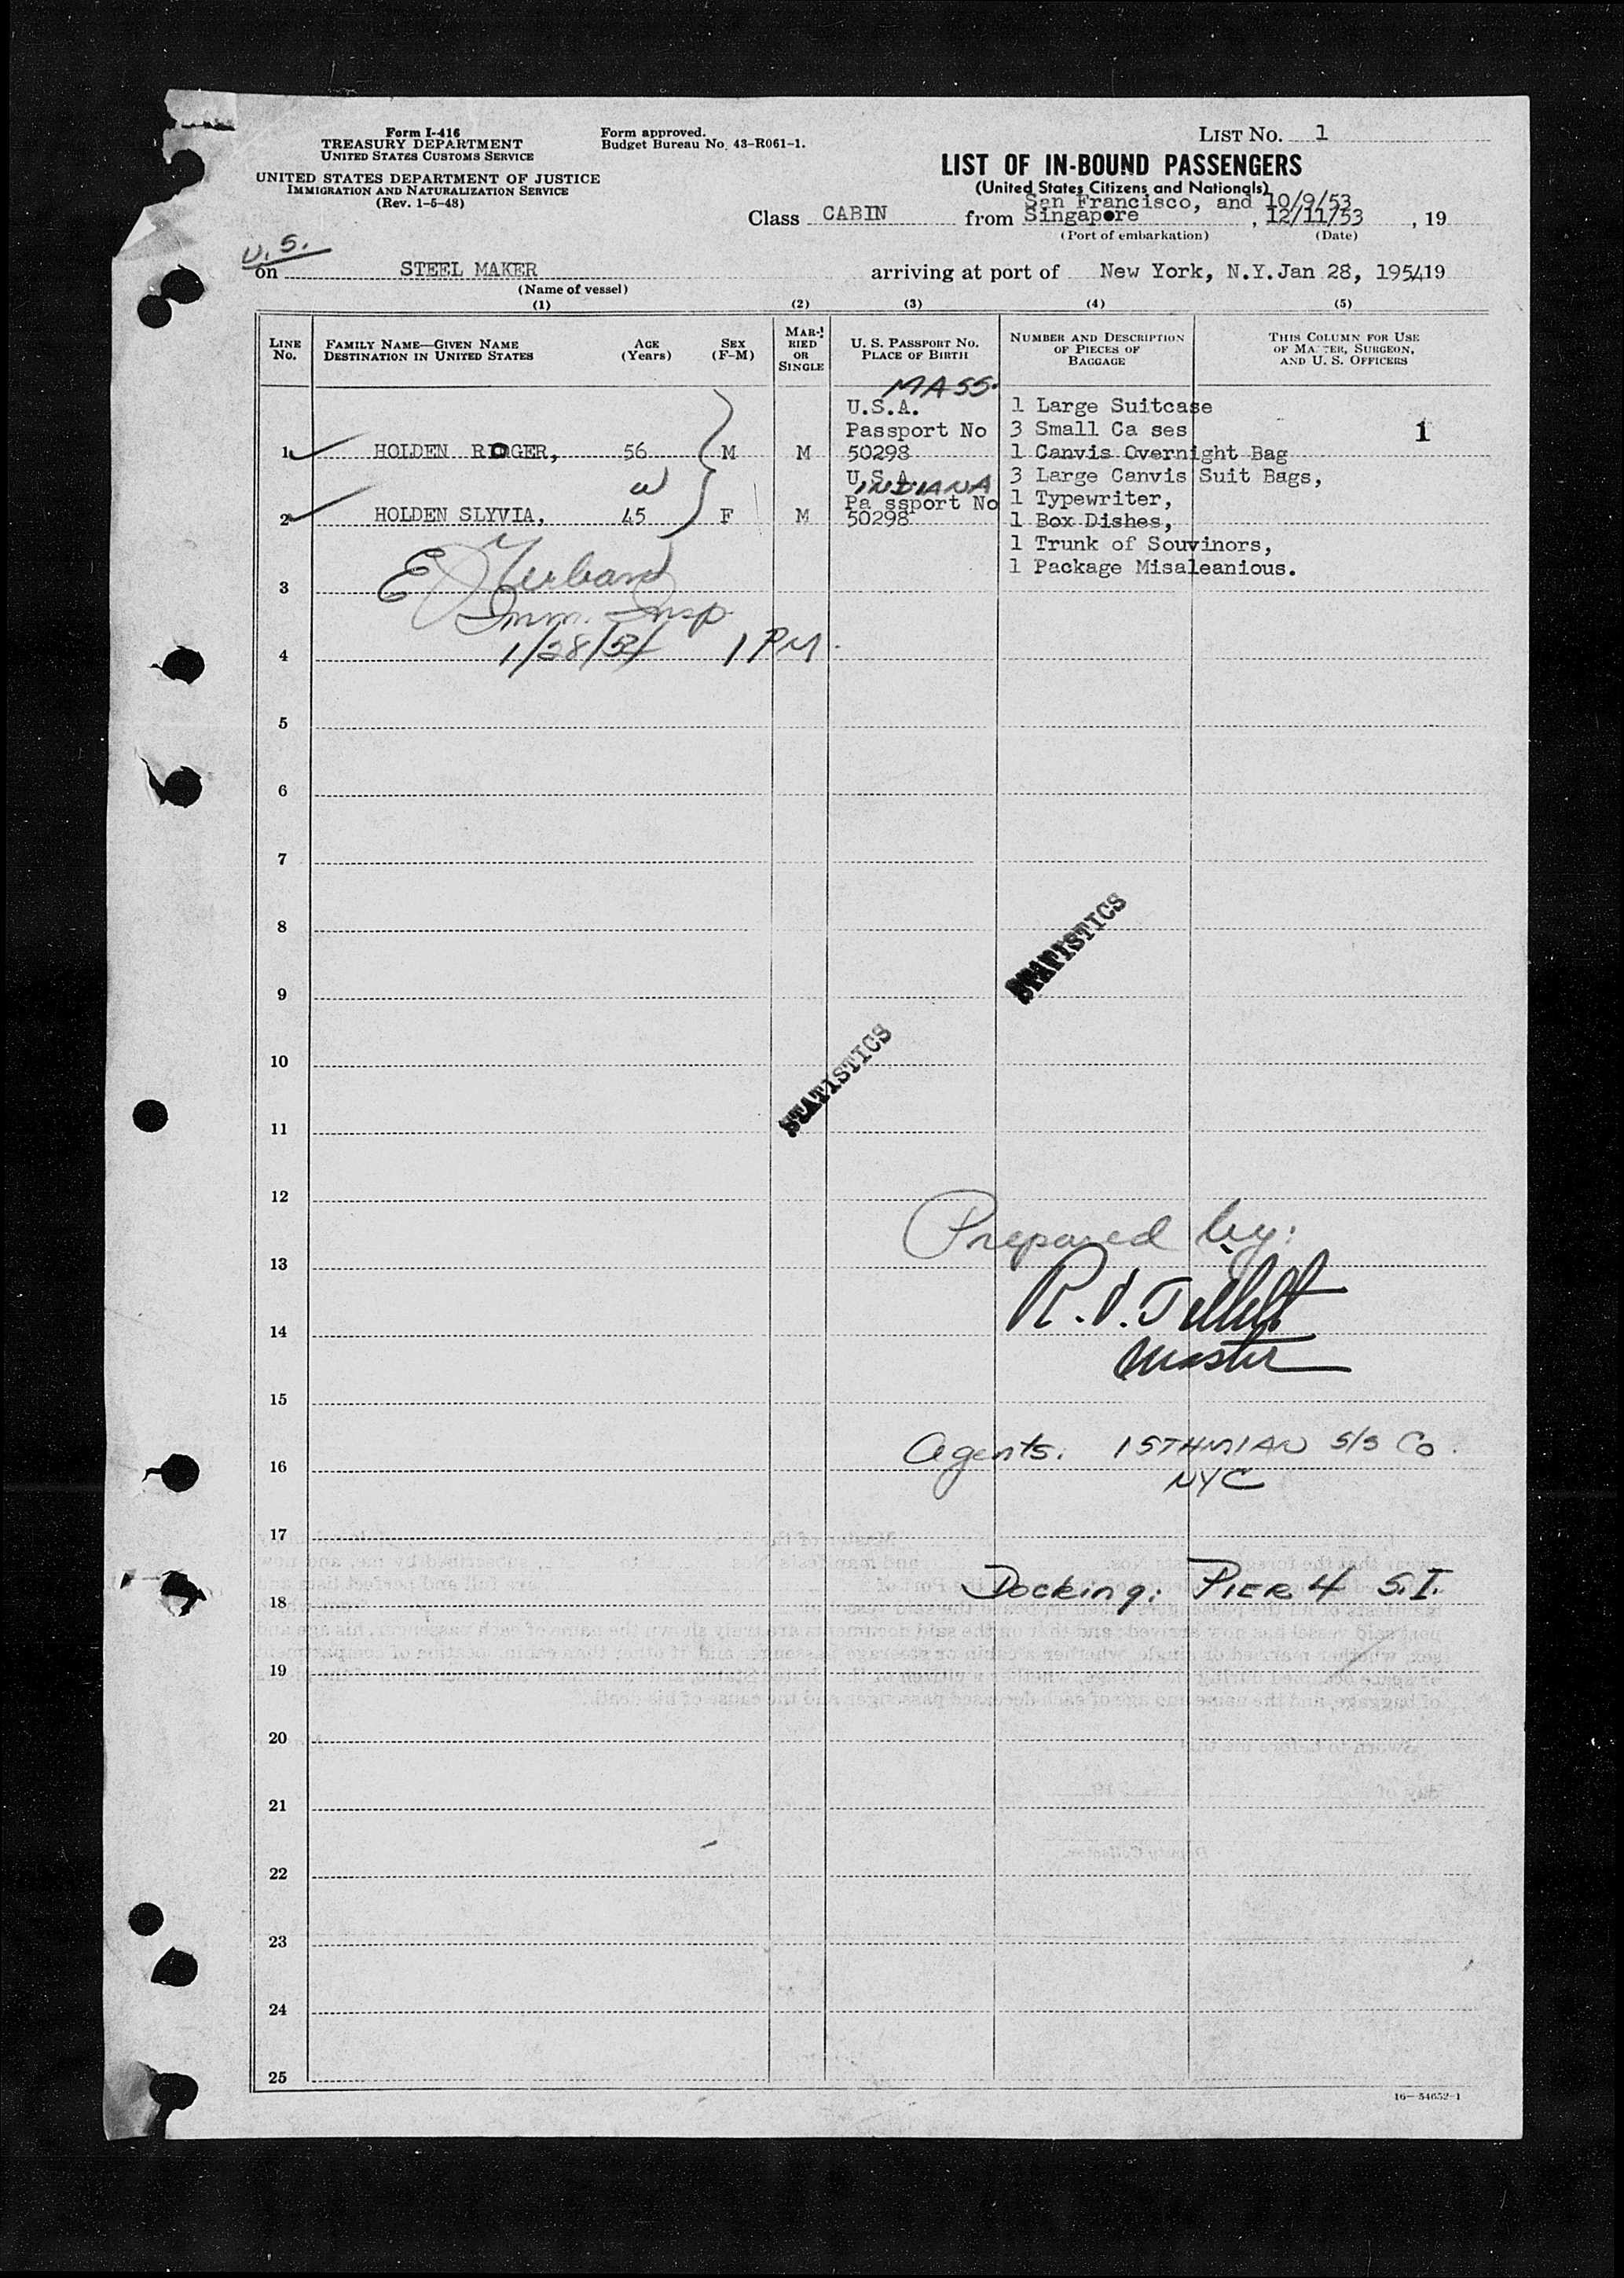 Form I-416
TREASURY DEPARTMENT
UNITED STATES CUSTOMS SERVICE
UNITED STATES DEPARTMENT OF JUSTICE
IMMIGRATION AND NATURALIZATION SERVICE
(Rev. 1-5-48)
Form approved.
Budget Bureau No. 43-R061-1.
LIST NO. 1
LIST OF IN-BOUND PASSENGERS
(United States Citizens and Nationals)
San Francisco, and 10/9/53
Class CABIN from Singapore , 12/11/53 , 19
(Port of embarkation) (Date)
U.S.
on STEEL MAKER arriving at port of New York, N.Y. Jan 28, 195419
(Name of vessel)
(1) (2) (3) (4) (5)
LINE NO.
FAMILY NAME—GIVEN NAME
DESTINATION IN UNITED STATES
AGE (Years)
SEX (F-M)
MARRIED OR SINGLE
U. S. PASSPORT NO.
PLACE OF BIRTH
NUMBER AND DESCRIPTION OF PIECES OF BAGGAGE
THIS COLUMN FOR USE OF MASTER, SURGEON, AND U. S. OFFICERS
MASS.
U.S.A. 1 Large Suitcase
Passport No 3 Small Ca ses 1
1 HOLDEN ROGER, 56 M M 50298 1 Canvis Overnight Bag
U.S.A. 3 Large Canvis Suit Bags,
W INDIANA
Pa ssport No 1 Typewriter,
2 HOLDEN SLYVIA, 45 F M 50298 1 Box Dishes,
1 Trunk of Souvinors,
1 Package Misaleanious.
3
Imm. Insp
4 1/28/54 1 PM
5
6
7
8
STATISTICS
9
10
STATISTICS
11
12
Prepared by:
13
14
Master
15
Agents. ISTHMIAN S/S Co.
16
NYC
17
Docking: PIER 4 S.I.
18
19
20
21
22
23
24
25
16—54652-1